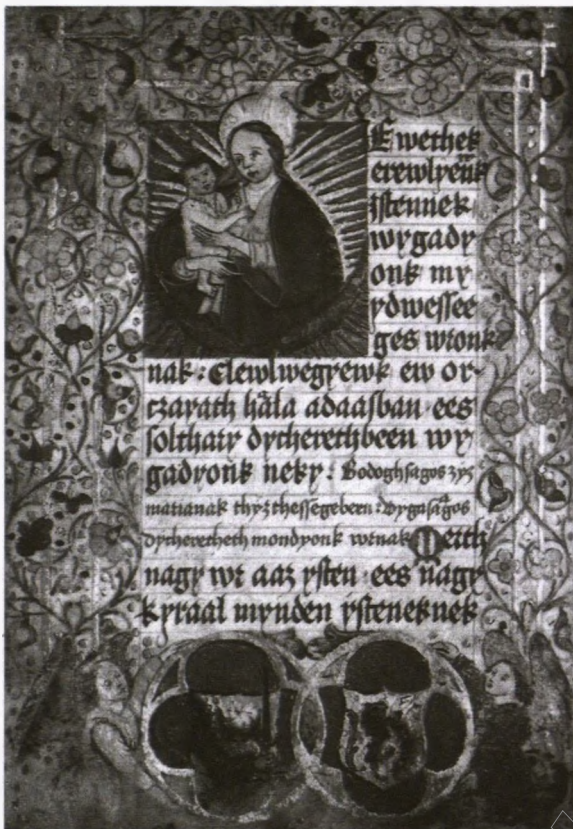 Ewethek
erewlyewk
ystennek
wygady
onk my
ydwessee
ges wronk
nak : Elewlwegyewk ew or-
czarath hala adaasban ees
solthary dycherethbeen wy
gadyonk neky : Bodoghsagos zyz
marianak thyzthessegebern : vygasagos
dycheretheth mondyonk wrnak Merth
nagy wr aaz ysten ees nagy
kyraal mynden ysteneknek